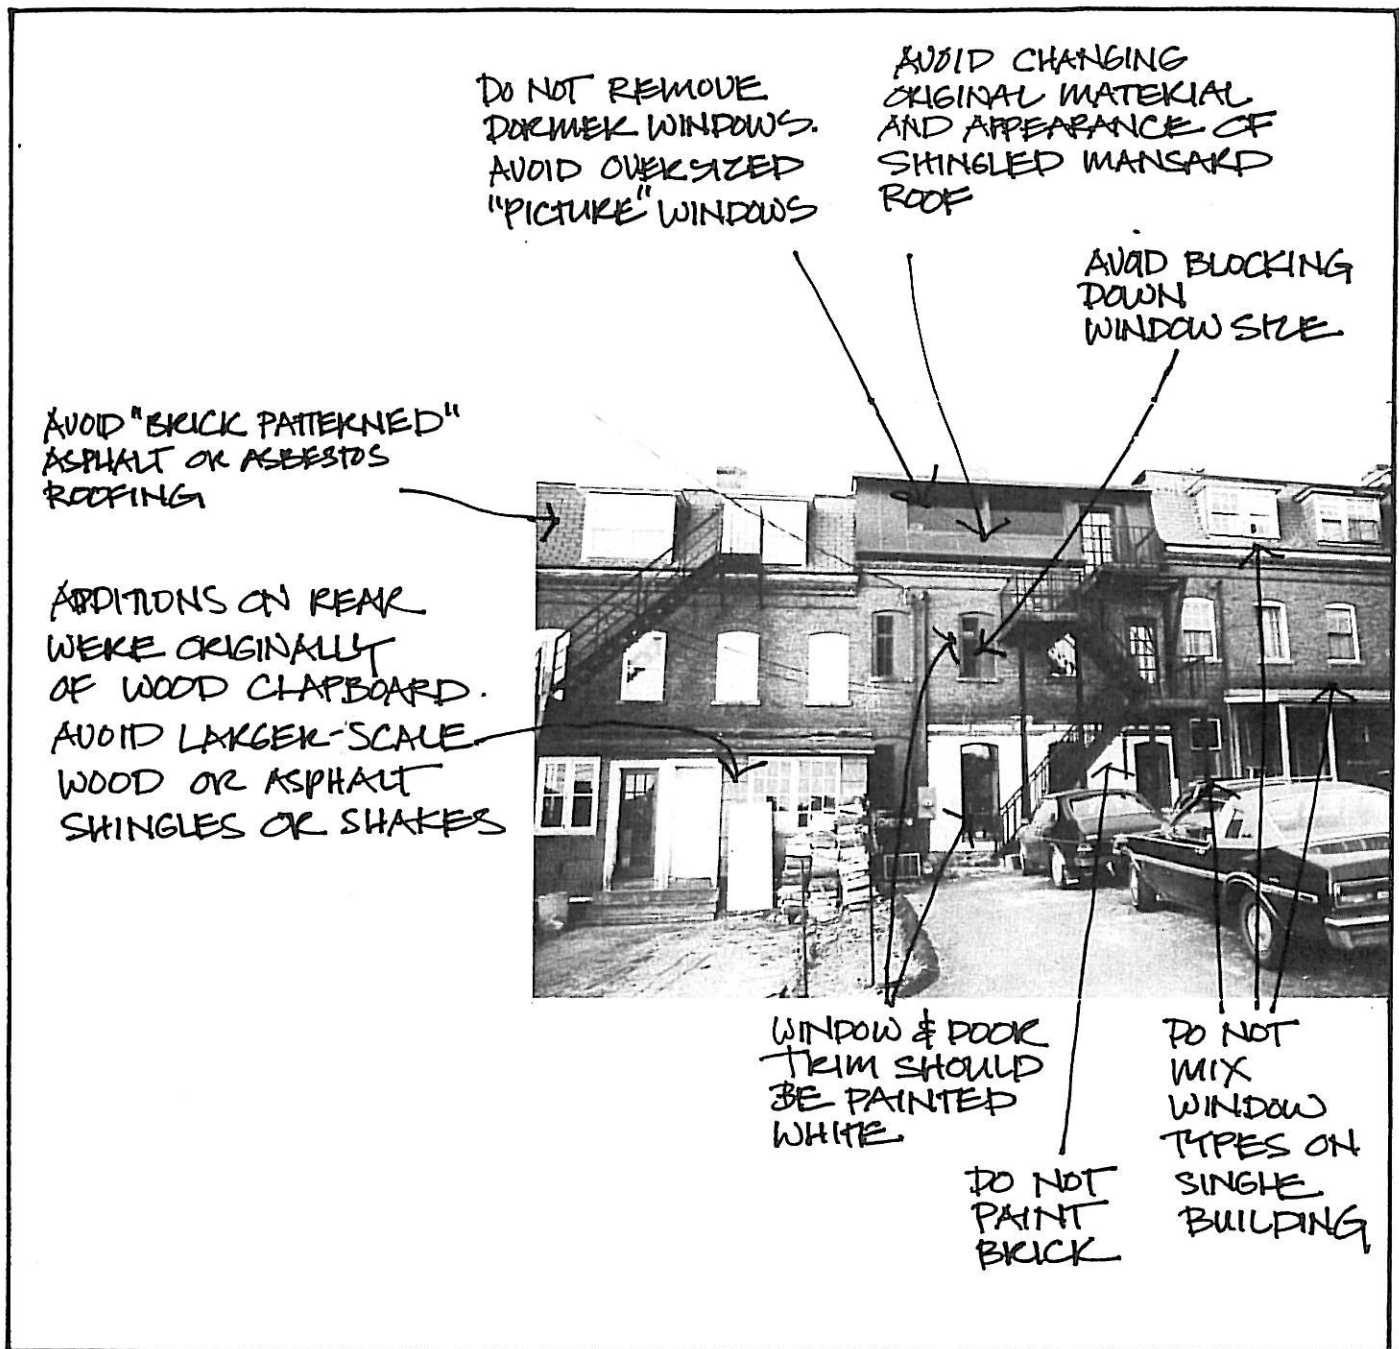 DO NOT REMOVE
DORMER WINDOWS.
AVOID OVERSIZED
"PICTURE" WINDOWS
AVOID CHANGING
ORIGINAL MATERIAL
AND APPEARANCE OF
SHINGLED MANSARD
ROOF
AVOID BLOCKING
DOWN
WINDOW SIZE
AVOID "BRICK PATTERNED"
ASPHALT OR ASBESTOS
ROOFING
ADDITIONS ON REAR
WERE ORIGINALLY
OF WOOD CLAPBOARD.
AVOID LARGER-SCALE
WOOD OR ASPHALT
SHINGLES OR SHAKES
WINDOW & DOOR
TRIM SHOULD
BE PAINTED
WHITE
DO NOT
PAINT
BRICK
DO NOT
MIX
WINDOW
TYPES ON
SINGLE
BUILDING